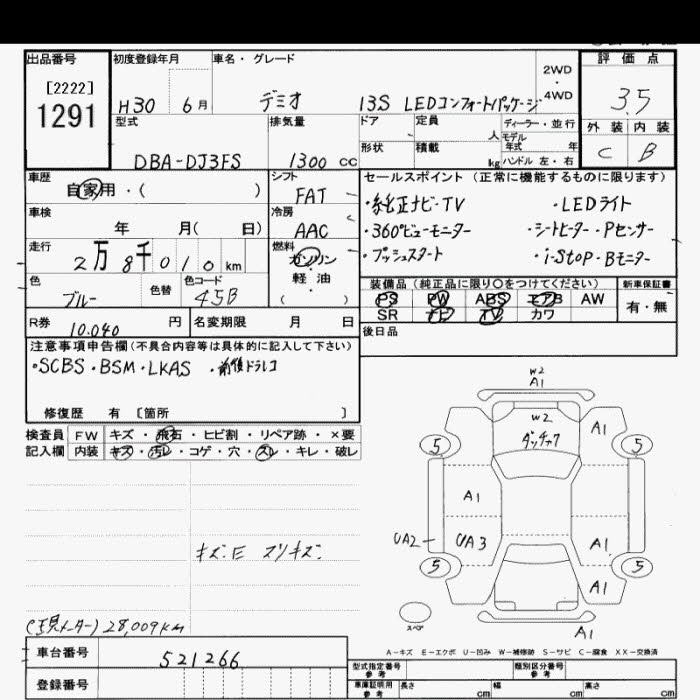 出品番号
[2222]
1291
初度登録年月
H30 6月
車名・グレード
デミオ 13S LEDコンフォートパッケージ
2WD
4WD
評価点
3.5
外装 内装
C B
型式
DBA-DJ3FS
排気量
1300 cc
ドア
定員 人
形状
積載 kg
ディーラー・並行
モデル年式 年
ハンドル 左・右
車歴
自家用・( )
シフト
FAT
車検
年 月( 日)
冷房
AAC
走行
2万8千010km
燃料
ガソリン
軽油
( )
色
ブルー
色替
色コード
45B
セールスポイント(正常に機能するものに限ります)
・純正ナビ・TV ・LEDライト
・360°ビューモニター ・シートヒーター・Pセンサー
・プッシュスタート ・i-STOP・Bモニター
装備品(純正品に限り○をつけてください)
PS PW ABS エアB AW
SR ナビ TV カワ
新車保証書
有・無
後日品
R券 10.040 円
名変期限 月 日
注意事項申告欄(不具合内容等は具体的に記入して下さい)
・SCBS・BSM・LKAS ・前後ドラレコ
修復歴 有 [箇所 ]
検査員 FW キズ・飛石・ヒビ割・リペア跡・×要
記入欄 内装 キズ・汚レ・コゲ・穴・スレ・キレ・破レ
キズ.E スリキズ.
W2
A1
W2
A1
5
5
A1
UA2 UA3
A1
5
5
A1
A1
スペア
A-キズ E-エクボ U-凹み W-補修跡 S-サビ C-腐食 XX-交換済
(現メーター)28,009km
車台番号
521266
登録番号
型式指定番号
参考
類別区分番号
参考
車庫証明用
参考
長さ cm
幅 cm
高さ cm